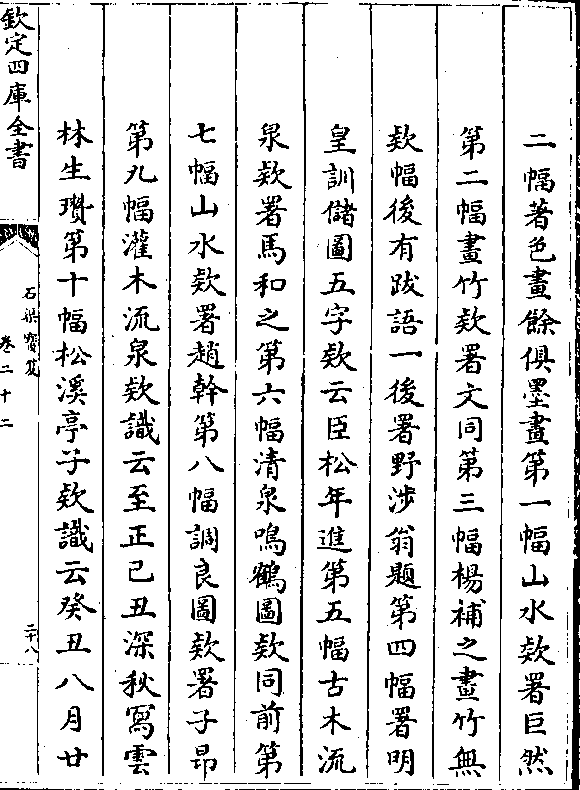 二幅著色畫餘俱墨畫第一幅山水欵署巨然
第二幅畫竹欵署文同第三幅楊補之畫竹無
欵幅後有跋語一後署野涉翁題第四幅署明
皇訓儲圖五字欵云臣松年進第五幅古木流
泉欵署馬和之第六幅清泉鳴鶴圖欵同前第
七幅山水欵署趙幹第八幅調良圖欵署子昂
第九幅灌木流泉欵識云至正己丑深秋寫雲
林生瓚第十幅松溪亭子欵識云癸丑八月廿
欽定四庫全書
石渠寳笈
卷二十二
二十八